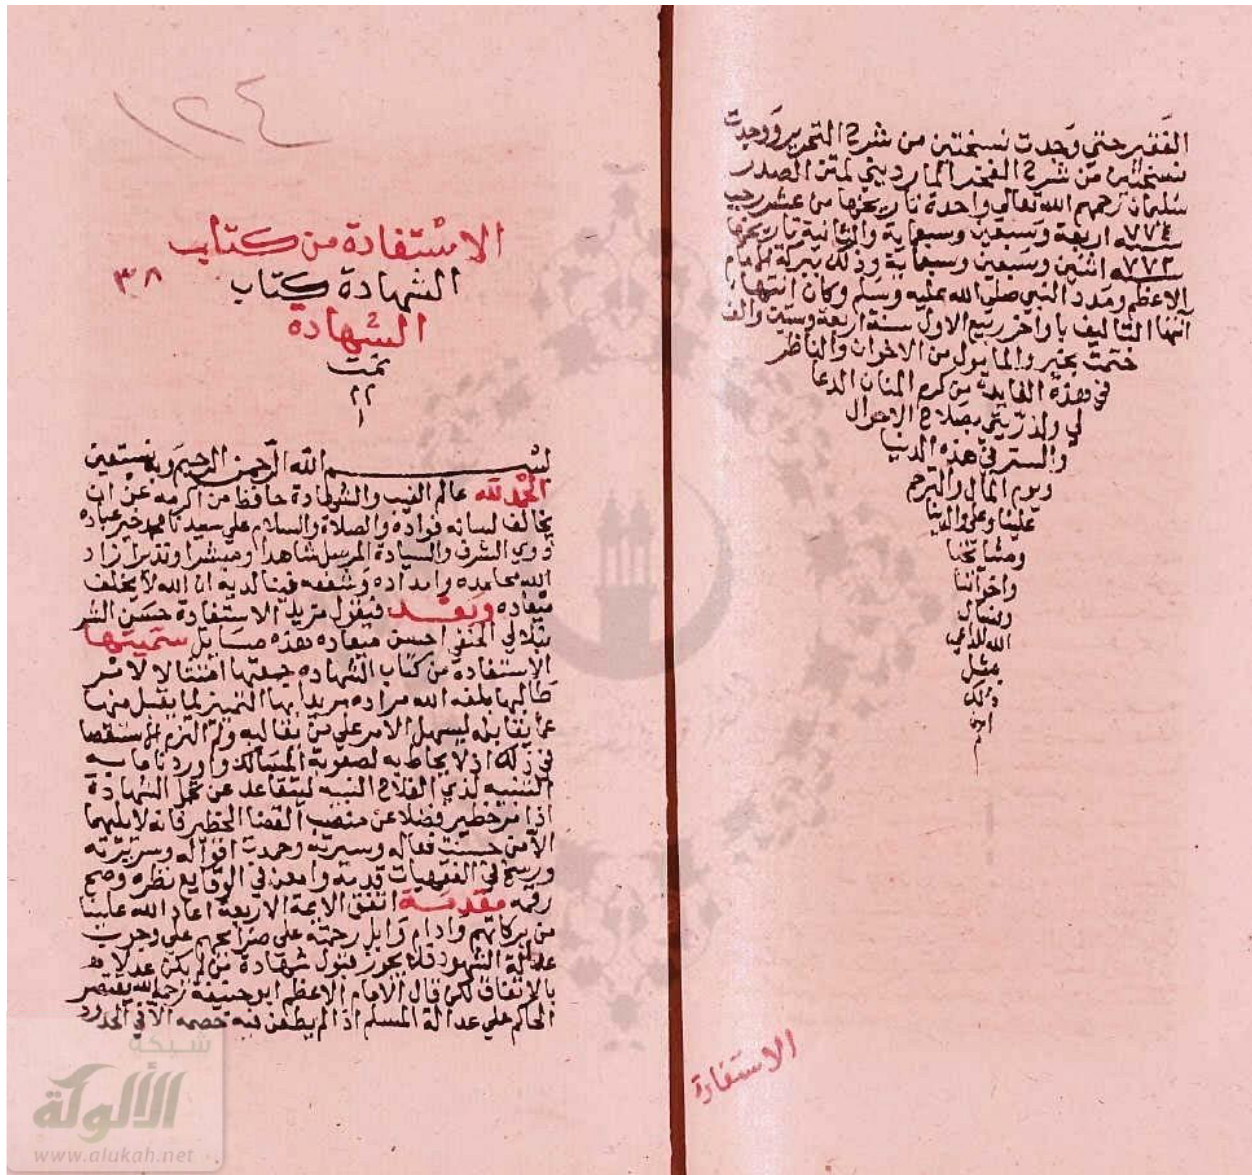 الفقير حتي وجدت نسختين من شرح التحرير ووجدت
نسختين من شرح الفخر المارديني لمتن الصدر
سليمان رحمهم الله تعالي واحدة تاريخها من عشر رجب
سنة ٧٧٤ اربعة وسبعين وسبعماية والثانية تاريخها
سنة ٧٧٢ اثنين وسبعين وسبعماية وذلك ببركة الامام
الاعظم ومدد النبي صلي الله عليه وسلم وكان انتهاء
التاليف باواخر ربيع الاول سنة اربعة وستين والف
ختمت بخير والمامول من الاخوان والناظر
في هذه الفايدة من كرم المنان الدعا
لي ولذريتي بصلاح الاحوال
والستر في هذه الدنيا
ويوم المال والترحم
علينا وعلي والدينا
ومشايخنا
واخواننا
الله للداعي
بمثل
ذلك
الاستفادة
١٢٤
الاستفادة من كتاب
الشهادة كتاب ٣٨
الشهادة
تمت
بسم الله الرحمن الرحيم وبه نستعين
الحمد لله عالم الغيب والشهادة حافظ من اكرمه عن ان
يخالف لسانه فواده والصلاة والسلام علي سيدنا محمد خير عباده
ذوي الشرف والسيادة المرسل شاهدا ومبشرا ونذيرا زاد
الله محامده وامداده وشفعه فينا لديه ان الله لا يخلف
ميعاده وبعد فيقول مريد الاستفادة حسن الشر
نبلالي الحنفي احسن ميعاده هذه مسايل سميتها
الاستفادة من كتاب الشهاده جمعتها امتثالا لامر
طالبها بلغه الله مراده مريدا بها التمييز لما يقبل منها
عما يقابله ليسهل الامر علي من يغاليه ولم التزم الاستقصا
في ذلك اذ لا يحاط به لصعوبة المسالك واوردنا ما به
التنبيه لذي الفلاح النبيه ليتقاعد عن تحمل الشهادة
اذا مر خطير فضلا عن منصب القضا الخطير فانه لا يليهما
الا من حسنت فعاله وسيرته وحمدت اقواله وسريرته
ورسخ في الفقهيات قدمه وامعن في الوقايع نظره وصح
رقمه مقدمة اتفق الايمة الاربعة اعاد الله علينا
من بركاتهم وادام وابل رحمته علي ضرايحهم علي وجوب
عدالة الشهود فلا يجوز قبول شهادة من لم يكن عدلا
بالاتفاق لكن قال الامام الاعظم ابو حنيفة رحمه الله يقتصر
الحاكم علي عدالة المسلم اذا لم يطعن فيه خصمه الا في الحدود
شبكة
الألوكة
www.alukah.net